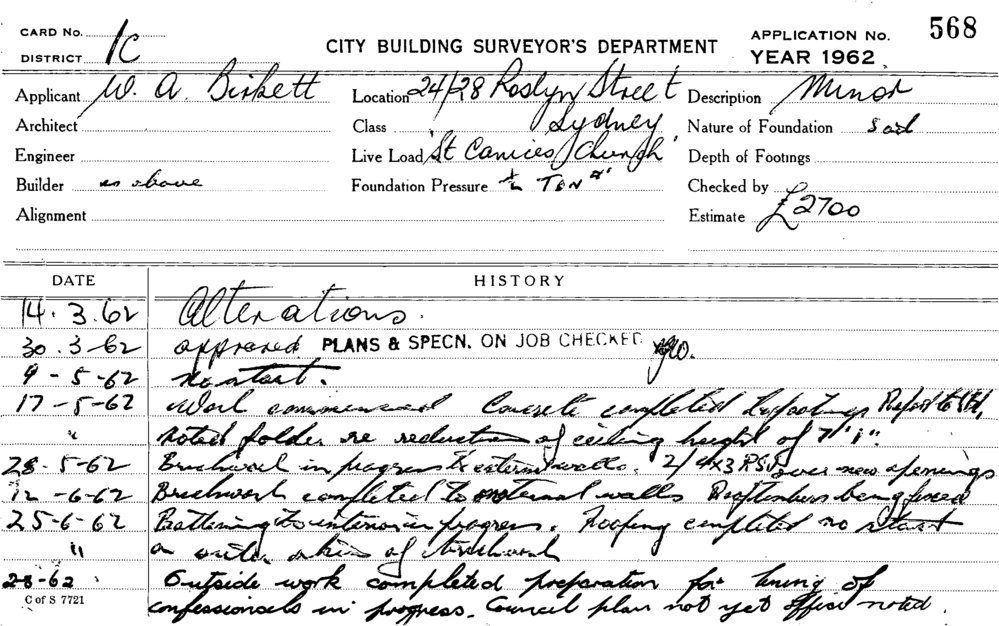 CARD No. 1C
DISTRICT
CITY BUILDING SURVEYOR'S DEPARTMENT
APPLICATION No. 568
YEAR 1962
Applicant W. A. Birkett
Location 24/28 Roslyn Street
Description Minor
Architect
Class Sydney
Nature of Foundation Soil
Engineer
Live Load 'St Canices Church'
Depth of Footings
Builder as above
Foundation Pressure ½ TON
Checked by
Alignment
Estimate £2700
DATE HISTORY
14.3.62 Alterations.
30.3-62 approved PLANS & SPECN. ON JOB CHECKED
9-5-62 No start.
17-5-62 Work commenced Concrete completed to footings
" Noted folder re reduction of ceiling height of 7'1".
28-5-62 Brickwork in progress to walls. 2/4x3 RSJ over new openings
12-6-62 Brickwork completed to walls being fixed
25-6-62 Battening to interior in progress. Roofing completed no start
" on outer skin of brickwork
28-62 Outside work completed preparation for lining of
C of S 7721
confessionals in progress. Council plan not yet office noted.